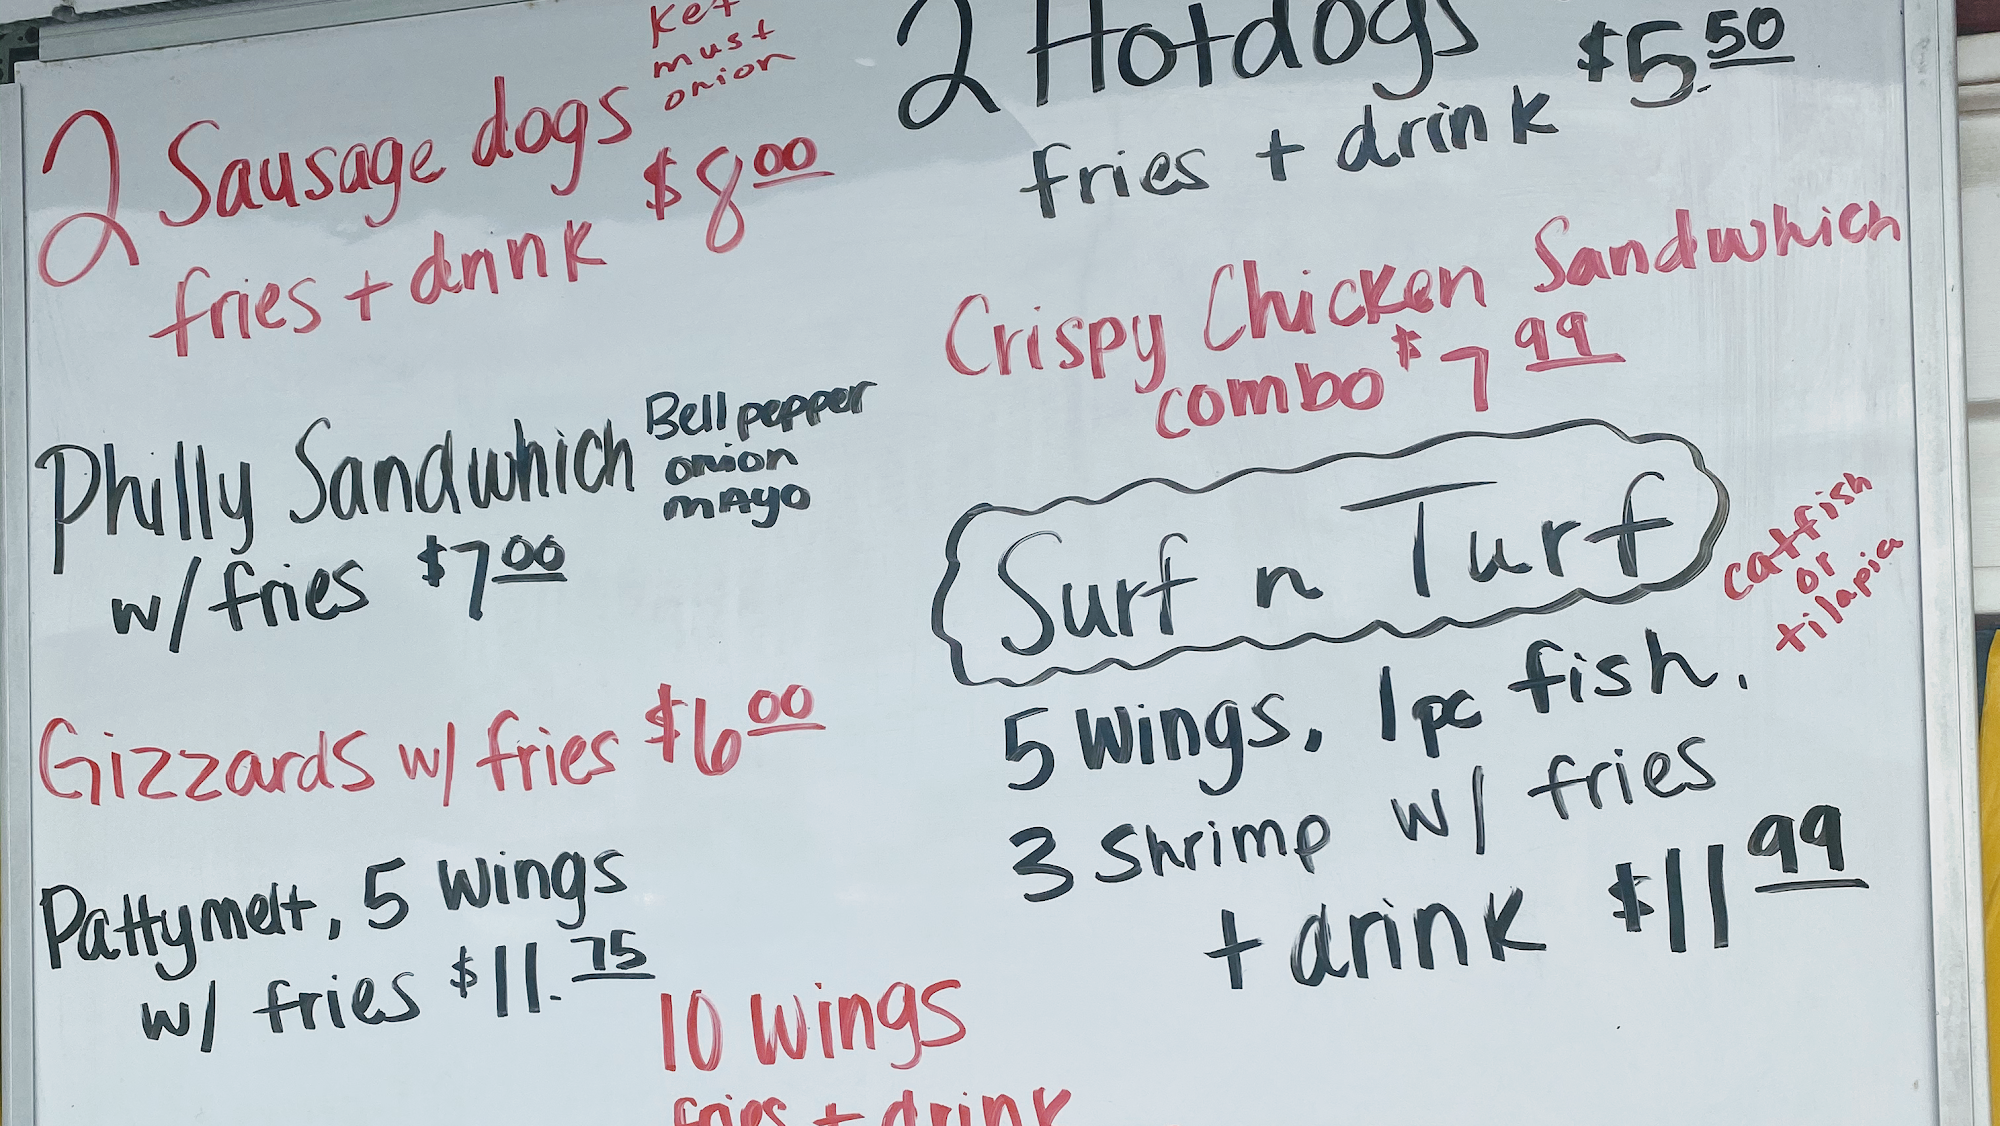 2 Sausage dogs
ket
must
onion
fries + drink $8.00
Philly Sandwhich
Bell pepper
onion
mAyo
w/ fries $7.00
Gizzards w/ fries $6.00
Pattymelt, 5 wings
w/ fries $11.75
10 wings
fries + drink
2 Hotdogs $5.50
fries + drink
Crispy Chicken Sandwhich
combo $7.99
Surf n Turf
catfish
or
tilapia
5 wings, 1pc fish,
3 shrimp w/ fries
+ drink $11.99